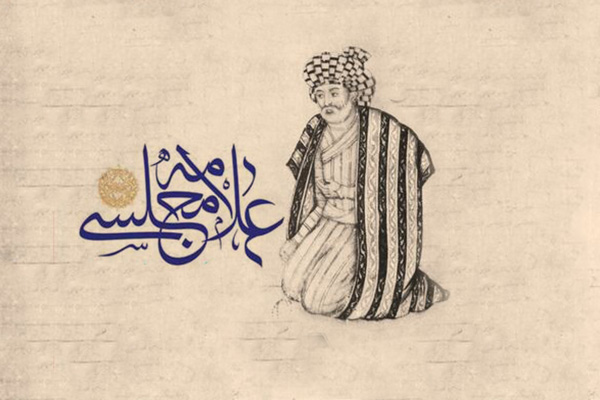 علامه مجلسی